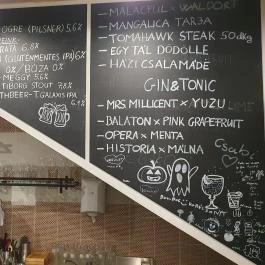 OGRE (PILSNER) 5,6%
6,8%
(GLUTÉNMENTES IPA) 6%
0% / BÚZA 0%
MEGGY 5,6%
TIBORG STOUT 7,8%
THBEER-TGALAXIS IPA
6,4%
- MALACFÜL × WALDORF
- MANGALICA TARJA
- TOMAHAWK STEAK 50dkg
- EGY TÁL DÖDÖLLE
- HÁZI CSALAMÁDÉ
GIN & TONIC
- MRS MILLICENT × YUZU
- BALATON × PINK GRAPEFRUIT
- OPERA × MENTA
- HISTORIA × MÁLNA
Csabi